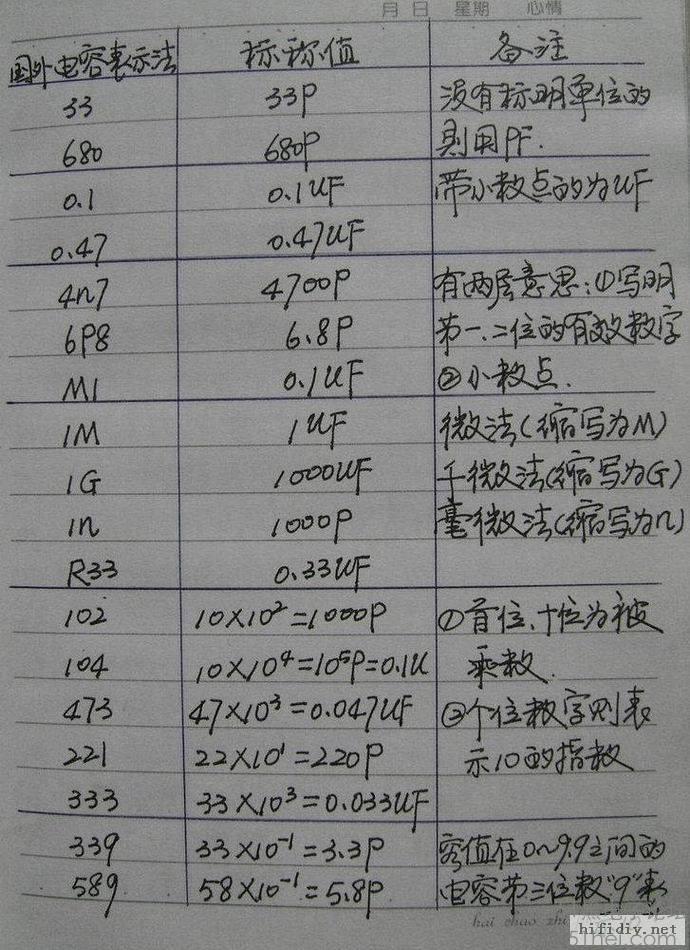 月 日 星期 心情
国外电容表示法 标称值 备注
33 33P 没有标明单位的
680 680P 则用PF.
0.1 0.1UF 带小数点的为UF
0.47 0.47UF
4n7 4700P 有两层意思:①写明
6P8 6.8P 第一.二位的有效数字
M1 0.1UF ②小数点.
1M 1UF 微法(缩写为M)
1G 1000UF 千微法(缩写为G)
1n 1000P 毫微法(缩写为n)
R33 0.33UF
102 10×10²=1000P ①首位、十位为被
104 10×10⁴=10⁵P=0.1U 乘数.
473 47×10³=0.047UF ②个位数字则表
221 22×10¹=220P 示10的指数
333 33×10³=0.033UF
339 33×10⁻¹=3.3P 容值在0~9.9之间的
589 58×10⁻¹=5.8P 电容第三位数"9"表
hai chao
hifidiy.net